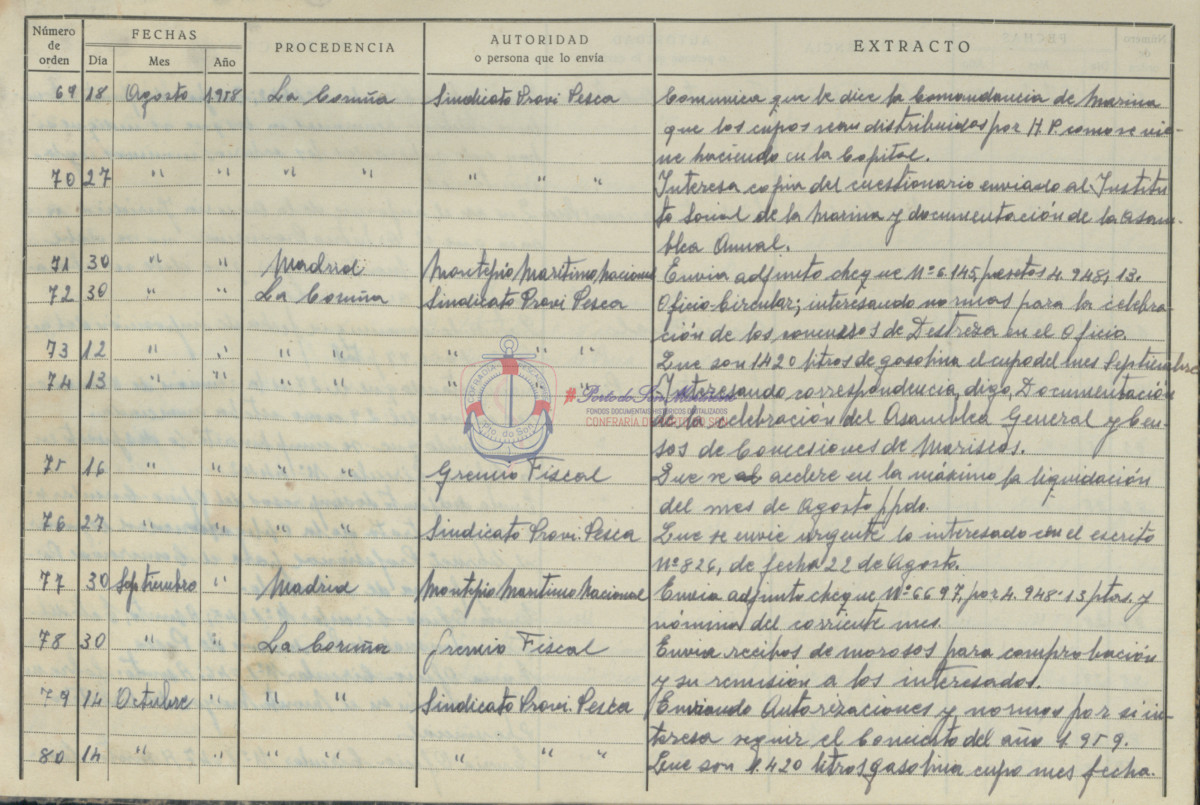 Número de orden FECHAS Día Mes Año PROCEDENCIA AUTORIDAD o persona que lo envía EXTRACTO
69 18 Agosto 1958 La Coruña Sindicato Provi Pesca Comunica que le dice la Comandancia de Marina
que los cupos sean distribuidos por H.P. como se vie-
ne haciendo en la Capital.
70 27 " " " " " " " Interesa copia del cuestionario enviado al Institu
to Social de la Marina y documentación de la asam-
blea Anual.
71 30 " " Madrid Montepio Maritimo Nacional Envia adjunto cheque Nº 6.145, pesetas 4.948,13.
72 30 " " La Coruña Sindicato Provi Pesca Oficio-Circular; interesando normas para la celebra-
ción de los concursos de Destreza en el Oficio.
73 12 " " " " " " " Que son 1420 litros de gasolina el cupo del mes Septiembre
74 13 " " " " " " " Interesando correspondencia, digo, Documentación
de la celebración del Asamblea General y Cen-
sos de Concesiones de Mariscos.
75 16 " " " " Gremio Fiscal Que se acelere en la máximo la liquidación
del mes de Agosto ppdo.
76 27 " " " " Sindicato Provi. Pesca Que se envie urgente lo interesado con el escrito
Nº 826, de fecha 22 de Agosto.
77 30 Septiembre " Madrid Montepio Maritimo Nacional Envia adjunto cheque Nº 6697, por 4.948.13 ptas. y
nómina del corriente mes.
78 30 " " La Coruña Gremio Fiscal Envia recibos de morosos para comprobación
y su remisión a los interesados.
79 14 Octubre " " " Sindicato Provi. Pesca Enviando Autorizaciones y normas por si in-
teresa seguir el Concierto del año 1.959.
80 14 " " " " " " " Que son 1.420 litros gasolina cupo mes fecha.
CONFRARIA
Pto. do Son
#Porto do Son
FONDOS DOCUMENTAIS HISTÓRICOS DIXITALIZADOS
CONFRARIA DE PORTO DO SON